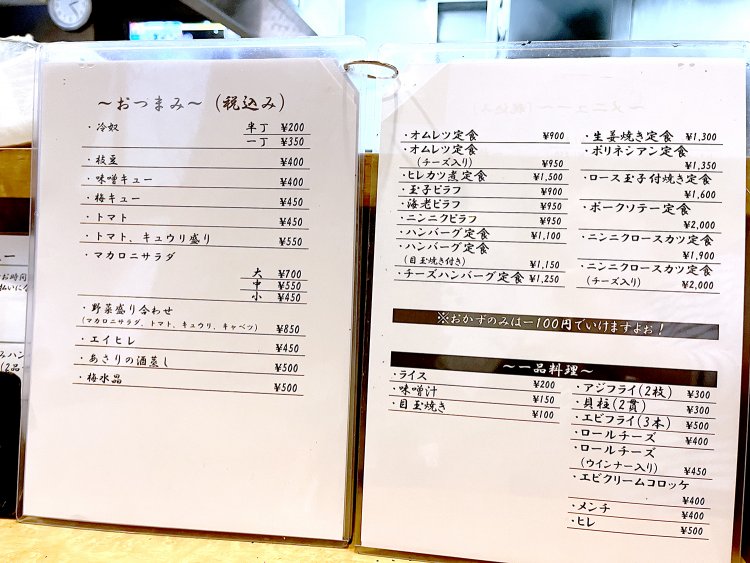 ～おつまみ～（税込み）
・冷奴 半丁 ¥200
一丁 ¥350
・枝豆 ¥400
・味噌キュー ¥400
・梅キュー ¥450
・トマト ¥450
・トマト、キュウリ盛り ¥550
・マカロニサラダ
大 ¥700
中 ¥550
小 ¥450
・野菜盛り合わせ
(マカロニサラダ、トマト、キュウリ、キャベツ) ¥850
・エイヒレ ¥450
・あさりの酒蒸し ¥500
・梅水晶 ¥500
・オムレツ定食 ¥900
・オムレツ定食
(チーズ入り) ¥950
・ヒレカツ煮定食 ¥1,500
・玉子ピラフ ¥900
・海老ピラフ ¥950
・ニンニクピラフ ¥950
・ハンバーグ定食 ¥1,100
・ハンバーグ定食
(目玉焼き付き) ¥1,150
・チーズハンバーグ定食 ¥1,250
・生姜焼き定食 ¥1,300
・ポリネシアン定食
¥1,350
・ロース玉子付焼き定食
¥1,600
・ポークソテー定食
¥2,000
・ニンニクロースカツ定食
¥1,900
・ニンニクロースカツ定食
(チーズ入り) ¥2,000
※おかずのみは－100円でいけますよぉ！
～一品料理～
・ライス ¥200
・味噌汁 ¥150
・目玉焼き ¥100
・アジフライ(2枚) ¥300
・貝柱(2貫) ¥300
・エビフライ(3本) ¥500
・ロールチーズ ¥400
・ロールチーズ
(ウインナー入り) ¥450
・エビクリームコロッケ
¥400
・メンチ ¥400
・ヒレ ¥500